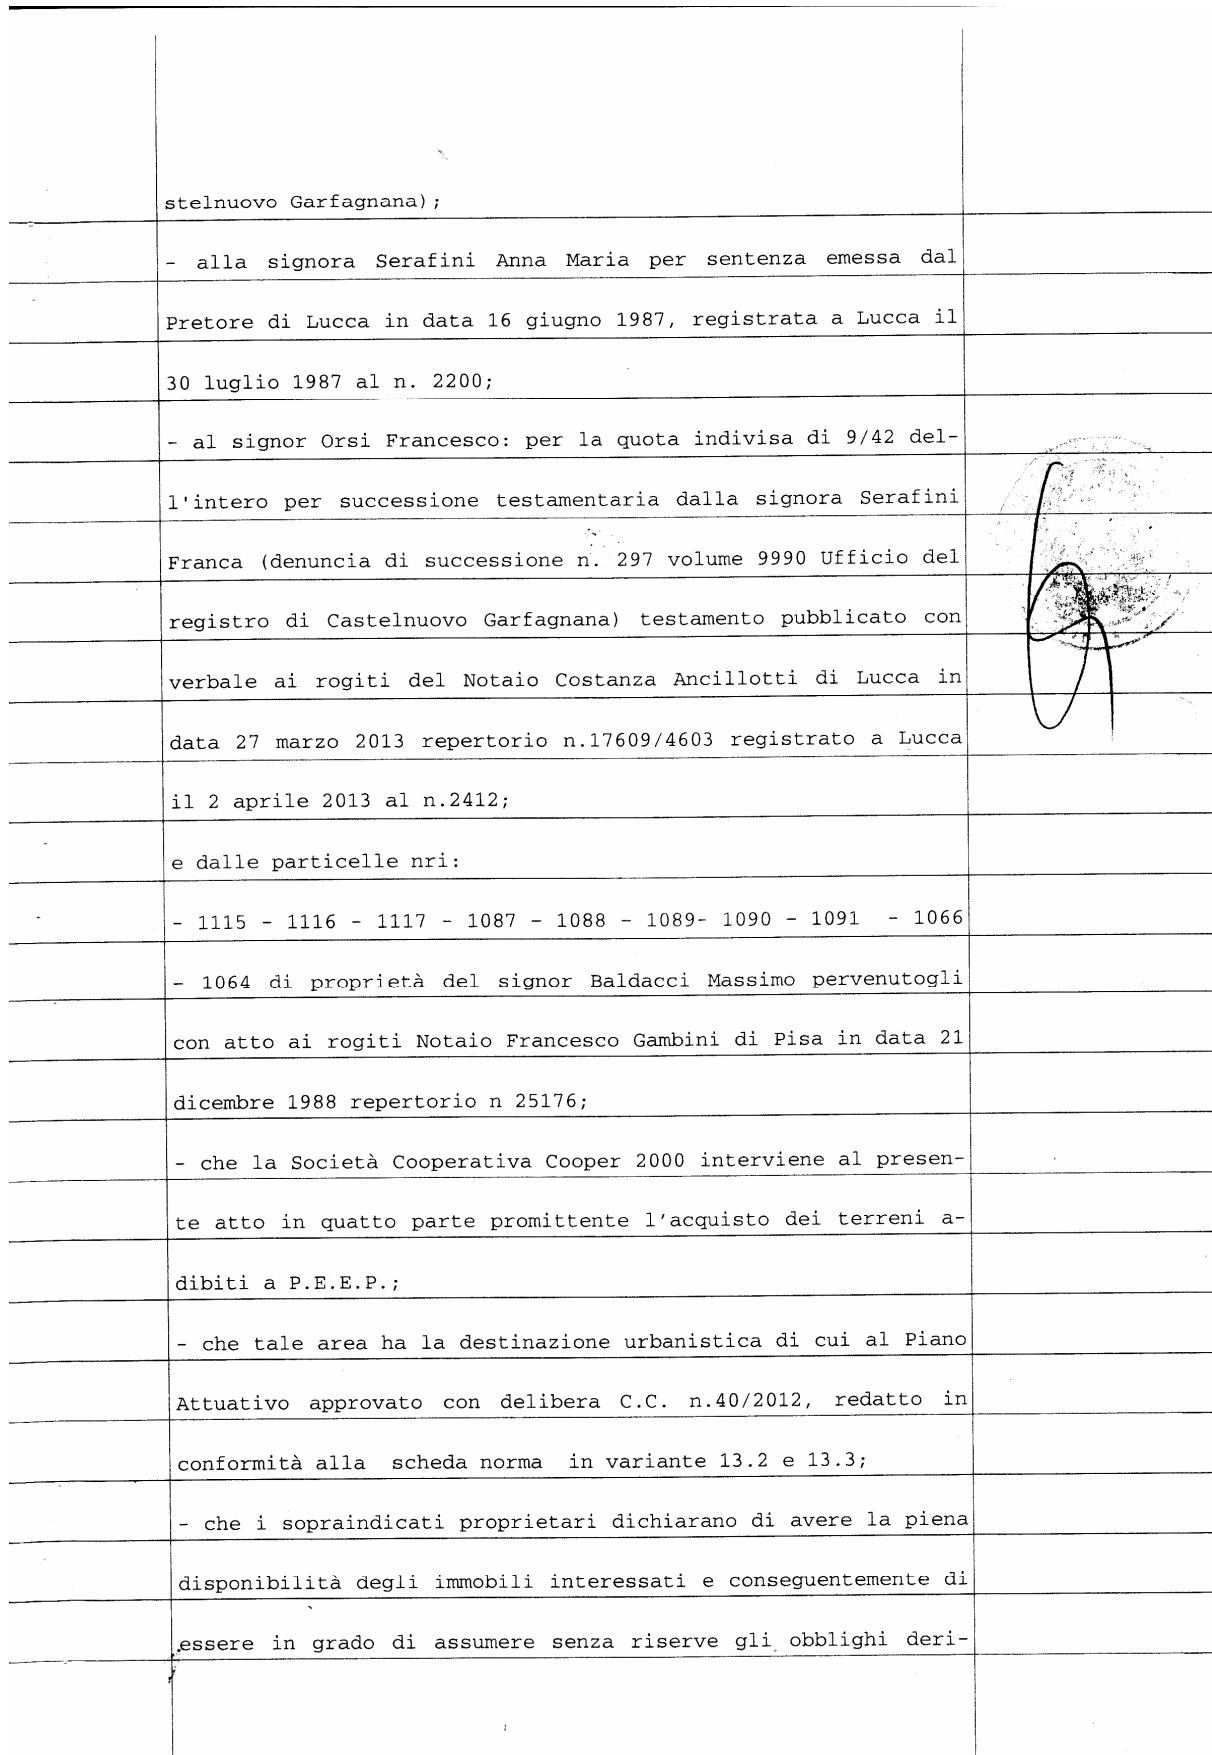 stelnuovo Garfagnana);
- alla signora Serafini Anna Maria per sentenza emessa dal
Pretore di Lucca in data 16 giugno 1987, registrata a Lucca il
30 luglio 1987 al n. 2200;
- al signor Orsi Francesco: per la quota indivisa di 9/42 del-
l'intero per successione testamentaria dalla signora Serafini
Franca (denuncia di successione n. 297 volume 9990 Ufficio del
registro di Castelnuovo Garfagnana) testamento pubblicato con
verbale ai rogiti del Notaio Costanza Ancillotti di Lucca in
data 27 marzo 2013 repertorio n.17609/4603 registrato a Lucca
il 2 aprile 2013 al n.2412;
e dalle particelle nri:
- 1115 - 1116 - 1117 - 1087 - 1088 - 1089- 1090 - 1091  - 1066
- 1064 di proprietà del signor Baldacci Massimo pervenutogli
con atto ai rogiti Notaio Francesco Gambini di Pisa in data 21
dicembre 1988 repertorio n 25176;
- che la Società Cooperativa Cooper 2000 interviene al presen-
te atto in quatto parte promittente l'acquisto dei terreni a-
dibiti a P.E.E.P.;
- che tale area ha la destinazione urbanistica di cui al Piano
Attuativo approvato con delibera C.C. n.40/2012, redatto in
conformità alla  scheda norma  in variante 13.2 e 13.3;
- che i sopraindicati proprietari dichiarano di avere la piena
disponibilità degli immobili interessati e conseguentemente di
essere in grado di assumere senza riserve gli obblighi deri-